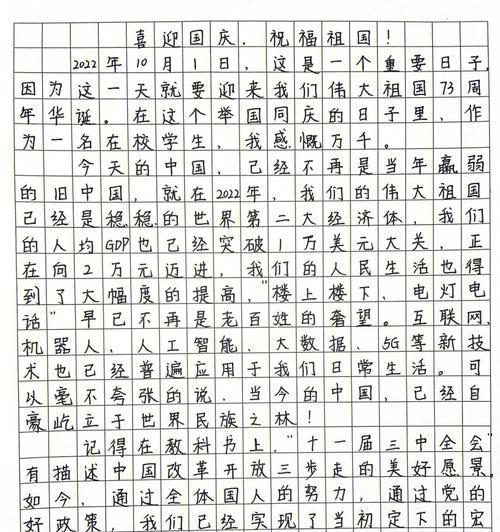 喜迎国庆，祝福祖国！
2022年10月1日，这是一个重要日子，
因为这一天就要迎来我们伟大祖国73周
年华诞。在这个举国同庆的日子里，作
为一名在校学生，我感慨万千。
今天的中国，已经不再是当年羸弱
的旧中国，就在2022年，我们的伟大祖国
已经是稳稳的世界第二大经济体，我们
的人均GDP也已经突破1万美元大关，正
在向2万元迈进，我们的人民生活也得
到了大幅度的提高，“楼上楼下，电灯电
话”早已不再是老百姓的奢望。互联网、
机器人、人工智能、大数据、5G等新技
术也已经普遍应用于我们日常生活。可
以毫不夸张的说，当今的中国，已经自
豪屹立于世界民族之林！
记得在教科书上，“十一届三中全会”
有描述中国改革开放三步走的美好愿景。
如今，通过全体国人的努力，通过党的
好政策，我们已经实现了当初定下的宏